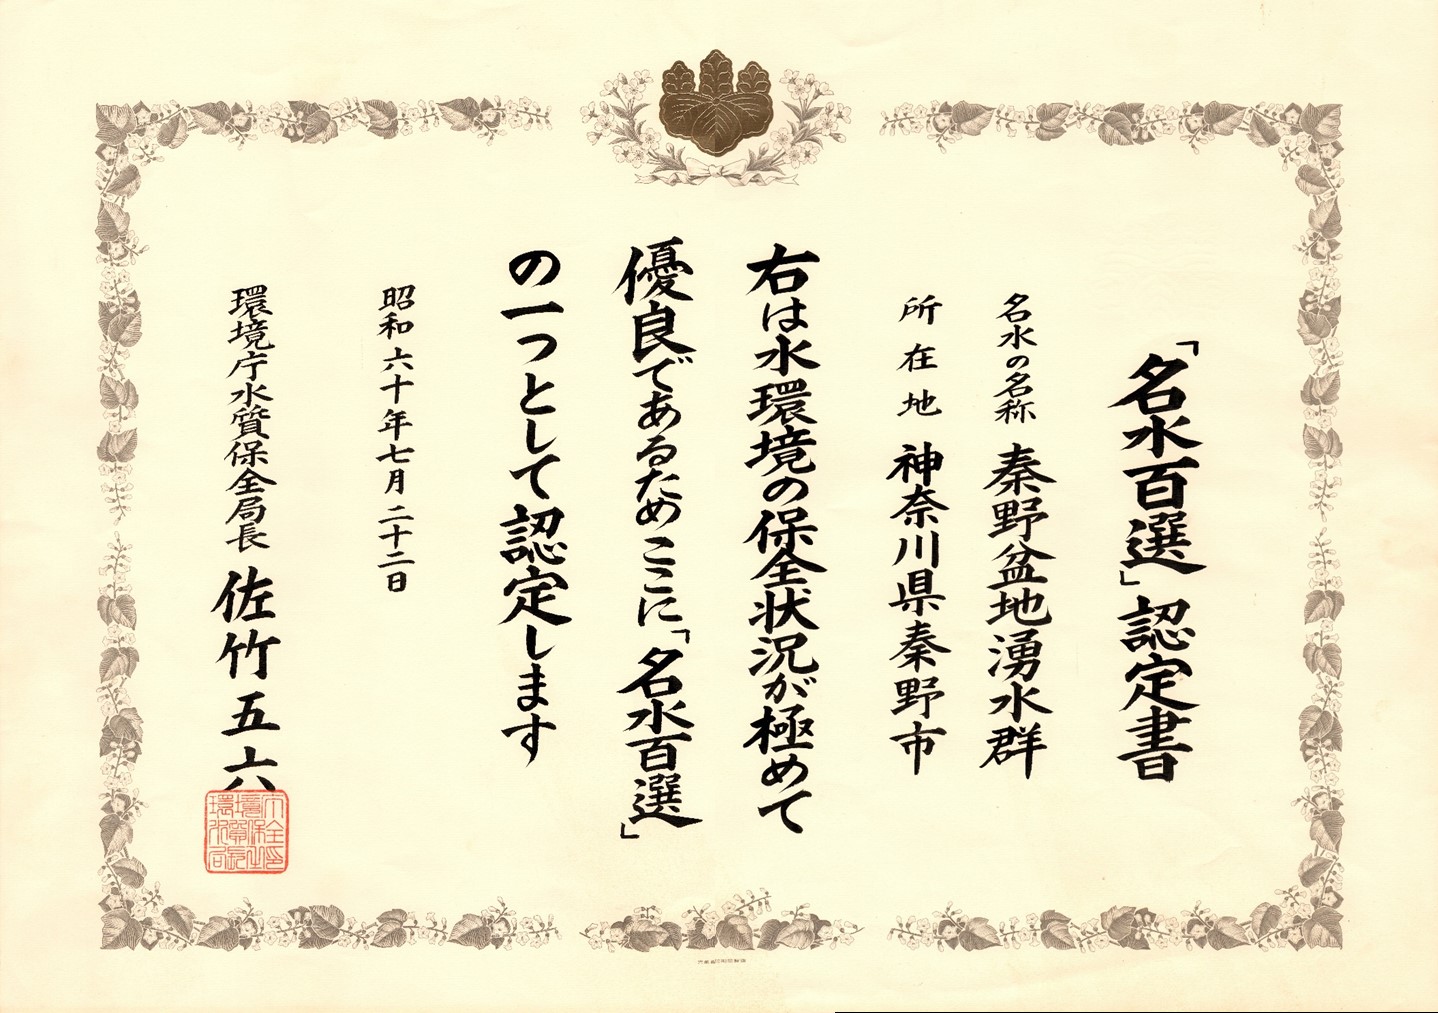 「名水百選」認定書
名水の名称 秦野盆地湧水群
所在地 神奈川県秦野市
右は水環境の保全状況が極めて
優良であるためここに「名水百選」
の一つとして認定します
昭和六十年七月二十二日
環境庁水質保全局長 佐竹五六